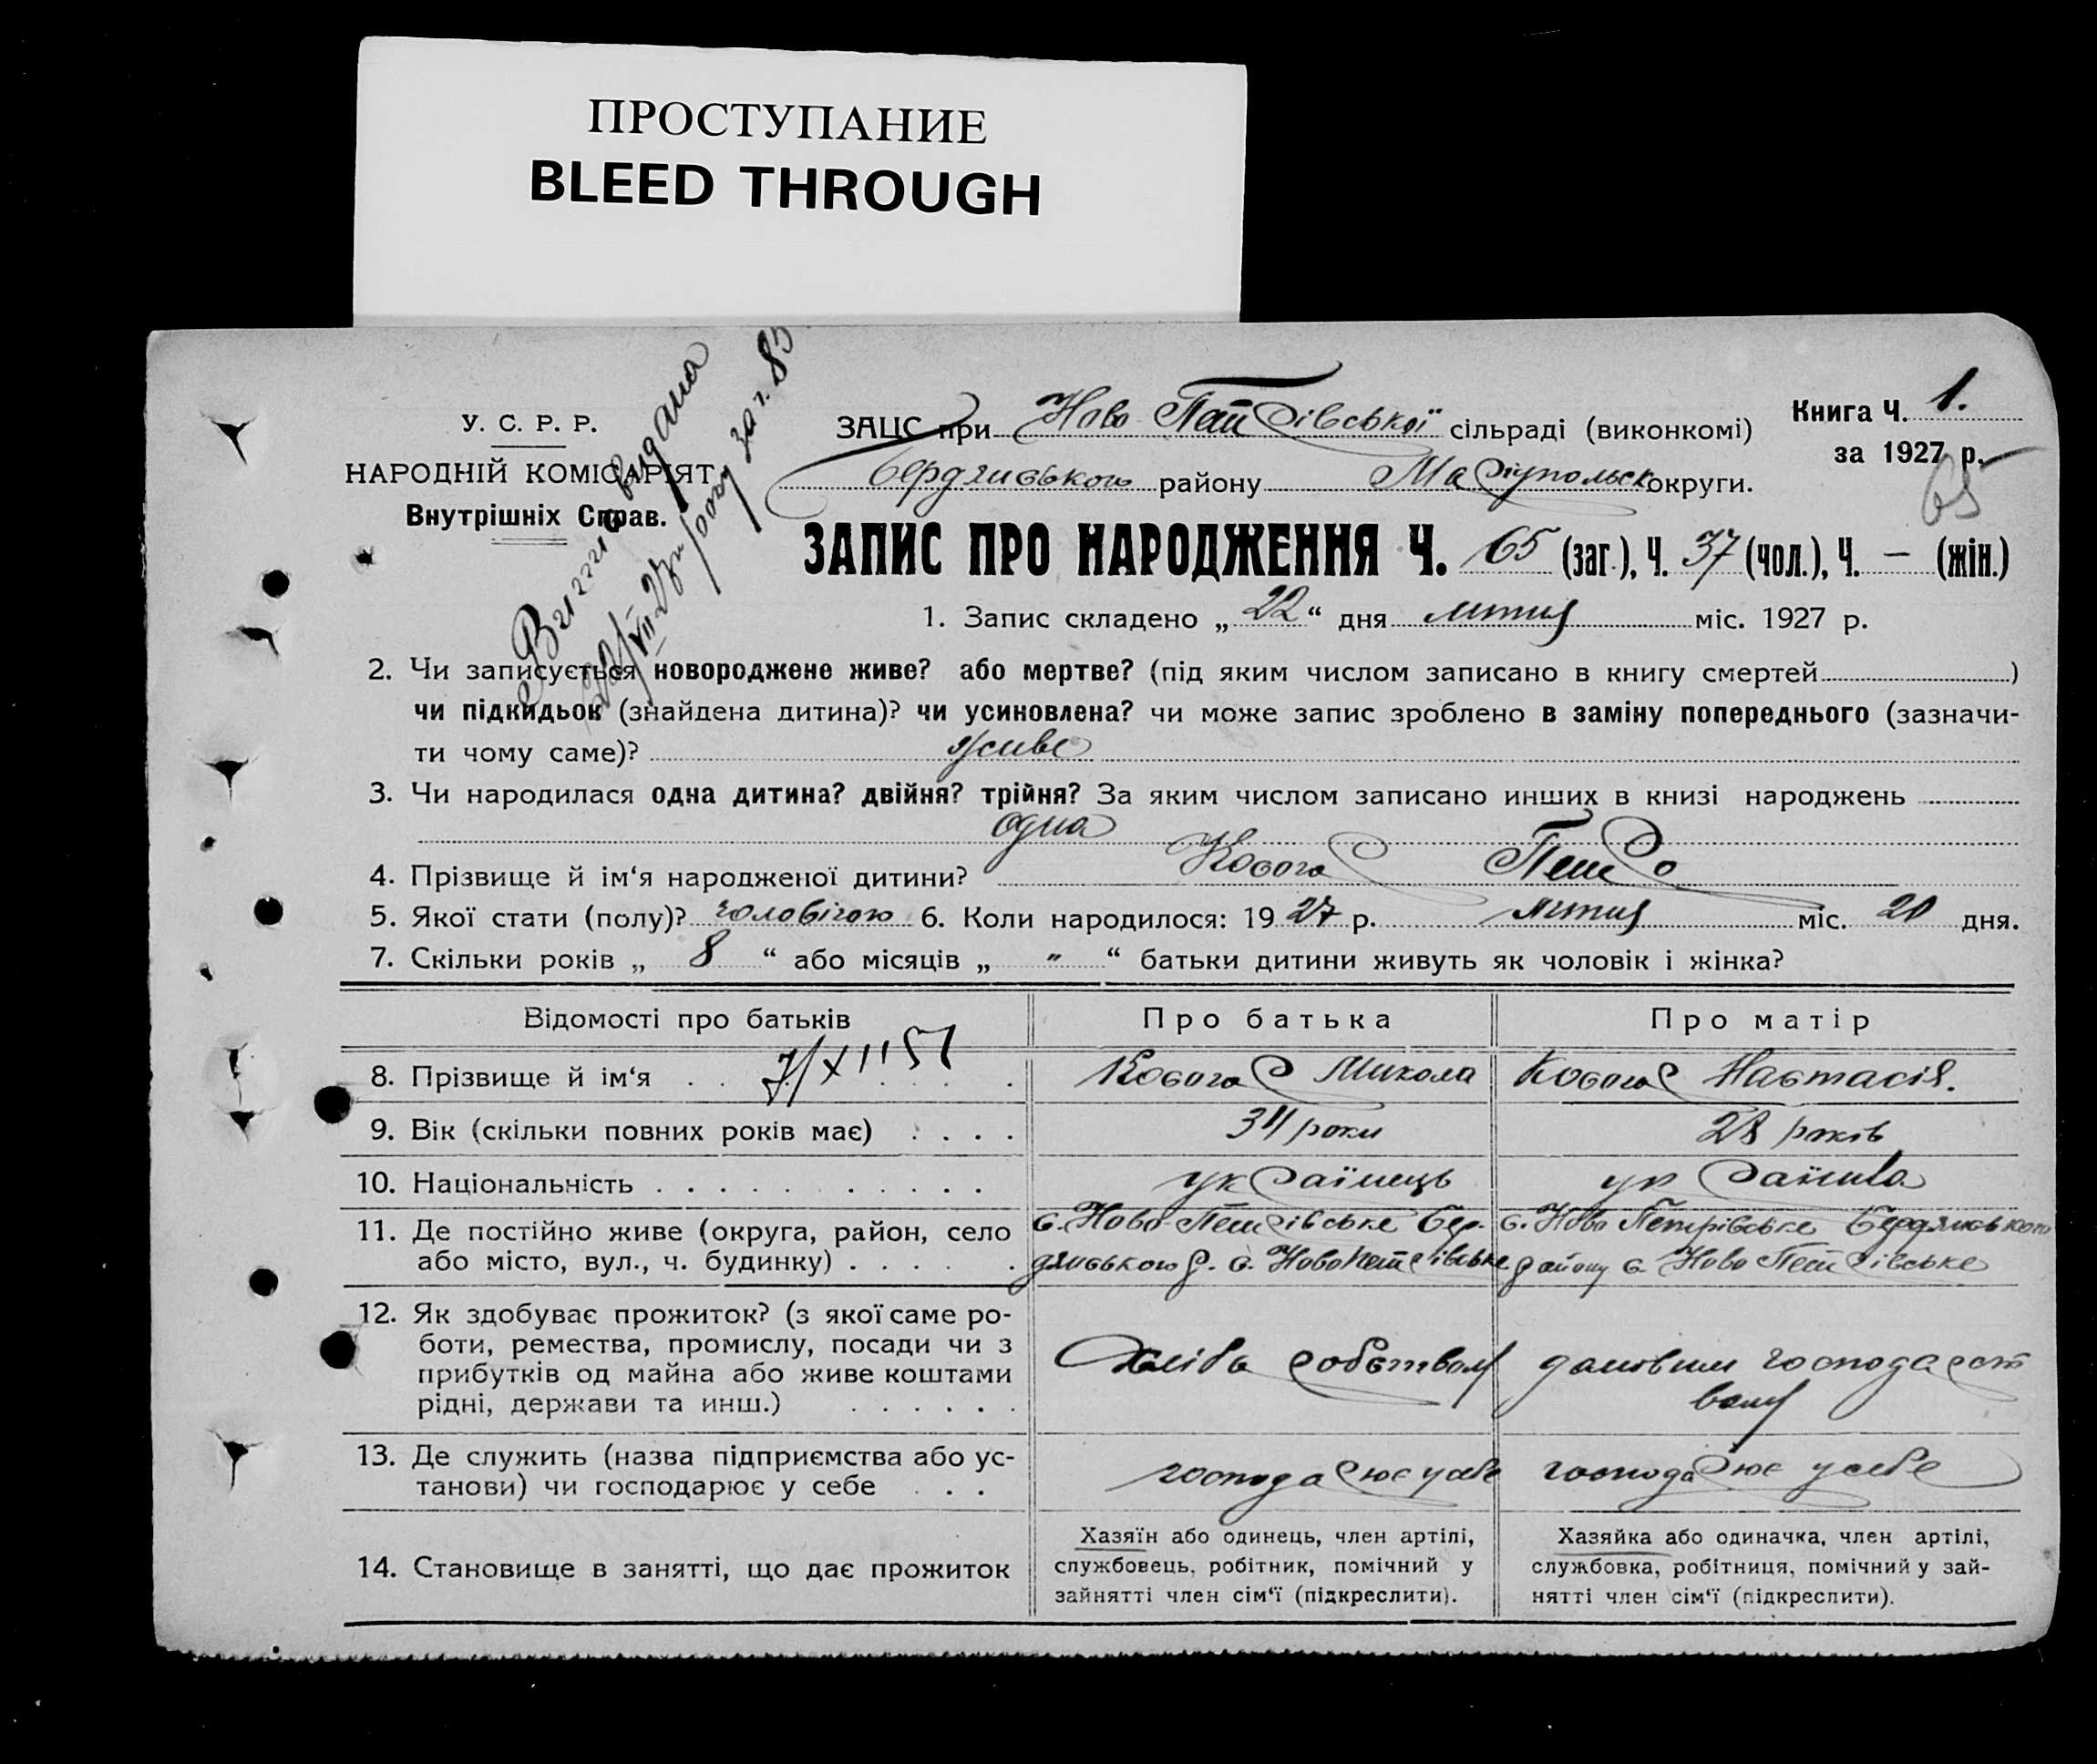 ПРОСТУПАНИЕ
BLEED THROUGH
У. С. Р. Р.
НАРОДНІЙ КОМІСАРІЯТ
Внутрішніх Справ.
видана
за ч. 85
ЗАЦС при Ново Пай рівської сільраді (виконкомі)
Бердянського району Маріупольськ округи.
Книга Ч. 1.
за 1927 р.
65
ЗАПИС ПРО НАРОДЖЕННЯ Ч. 65 (заг.), Ч. 37 (чол.), Ч. — (жін.)
1. Запис складено „ 22 “ дня липня міс. 1927 р.
2. Чи записується новороджене живе? або мертве? (під яким числом записано в книгу смертей )
чи підкидьок (знайдена дитина)? чи усиновлена? чи може запис зроблено в заміну попереднього (зазначи-
ти чому саме)? живе
3. Чи народилася одна дитина? двійня? трійня? За яким числом записано инших в книзі народжень
одна
4. Прізвище й ім‘я народженої дитини? Косогор Петро
5. Якої стати (полу)? чоловічою 6. Коли народилося: 19 27 р. липня міс. 20 дня.
7. Скільки років „ 8 “ або місяців „ " “ батьки дитини живуть як чоловік і жінка?
Відомості про батьків Про батька Про матір
7/XII 51
8. Прізвище й ім‘я Косогор Микола Косогор Настасія.
9. Вік (скільки повних років має) 34 роки 28 років
10. Національність українець українка
11. Де постійно живе (округа, район, село с. Ново Петрівське Бер- с. Ново Петрівське Бердянського
або місто, вул., ч. будинку) дянського р. с. Ново Петрівське району с. Ново Петрівське
12. Як здобуває прожиток? (з якої саме ро-
боти, ремества, промислу, посади чи з
прибутків од майна або живе коштами
рідні, держави та инш.)
Хліборобством домовим господарст
вом
13. Де служить (назва підприємства або ус-
танови) чи господарює у себе
господарює у себе господарює у себе
14. Становище в занятті, що дає прожиток
Хазяїн або одинець, член артілі,
службовець, робітник, помічний у
зайнятті член сім‘ї (підкреслити).
Хазяйка або одиначка, член артілі,
службовка, робітниця, помічний у зай-
нятті член сім‘ї (підкреслити).